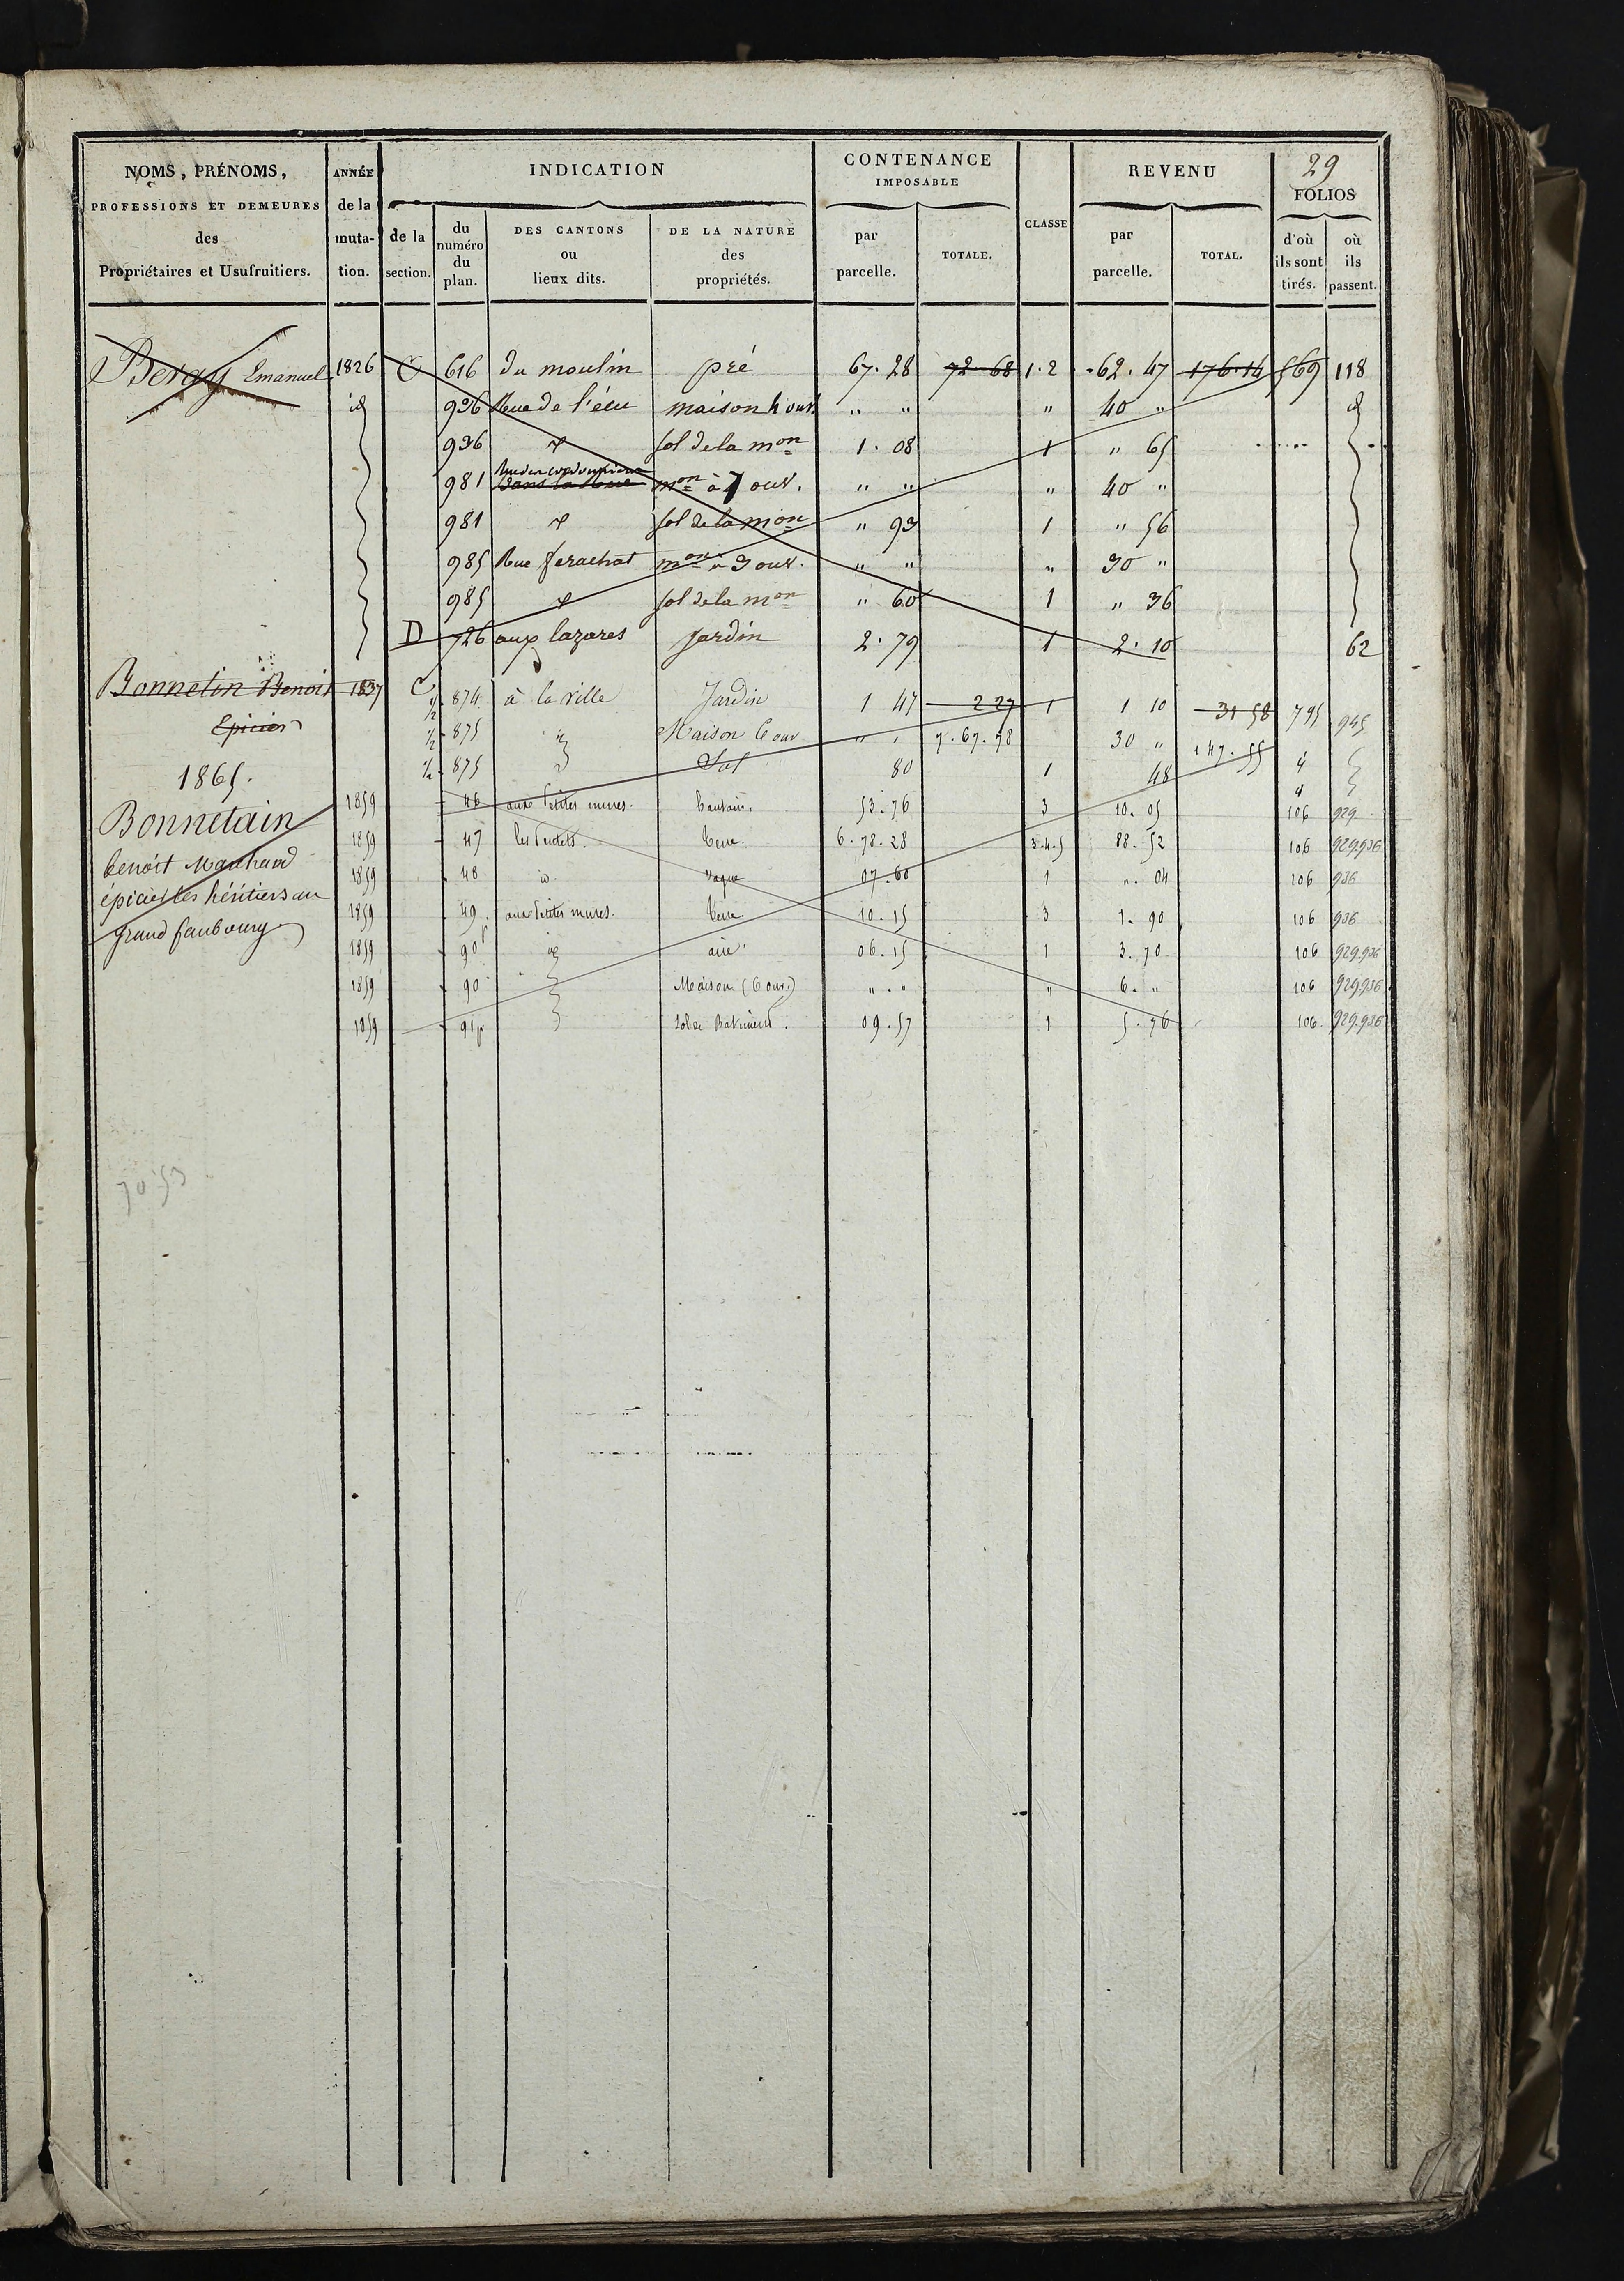 29
NOMS, PRÉNOMS, PROFESSIONS ET DEMEURES des Propriétaires et Usufruitiers.
ANNÉE de la muta- tion.
INDICATION
de la section.
du numéro du plan.
DES CANTONS ou lieux dits.
DE LA NATURE des propriétés.
CONTENANCE IMPOSABLE
par parcelle.
TOTALE.
CLASSE
REVENU
par parcelle.
TOTAL.
FOLIOS
d'où ils sont tirés.
où ils passent.
Emanuel 1826 C 616 du moulin pré 67.28 72.68 1.2 62.47 176.14 569 118
id 936 Rue de l'écu maison 4 ouv. " " " 40 " id
936 id sol de la mon 1.08 1 " 65
981 dans la Rue mon à 7 ouv. " " " 40 "
981 id sol de la mon " 93 1 " 56
985 Rue mon à 3 ouv. " " " 30 "
985 id sol de la mon " 60 1 " 36
D 726 aux lazares Jardin 2.79 1 2.10 62
Bonnetin Benoit 1837 C 1/2 874 à la ville Jardin 1 47 2 27 1 1 10 31 58 795 945
Epicier 1/2 875 id Maison 6 ouv " " 7.67.78 30 " 147.55 id
1865. 1/2 875 Sol 80 1 48 id
1859 46 aux Petites mures. 53.76 3 10.05 106 929
Bonnetain 1859 47 Terre 6.78.28 3.4.5 88.52 106 929.936
benoit Marchand 1859 48 id. vague 07.60 1 ". 04 106 936
épicier les héritiers au 1859 49 aux Petites mures. Terre 10.15 3 1.90 106 936
grand faubourg 1859 90 id aire 06.15 1 3.70 106 929.936
1859 90 Maison (6 ouv.) " . " " 6. " 106 929.936
1859 91p Sol de Batiment. 09.57 1 5.76 106 929.936